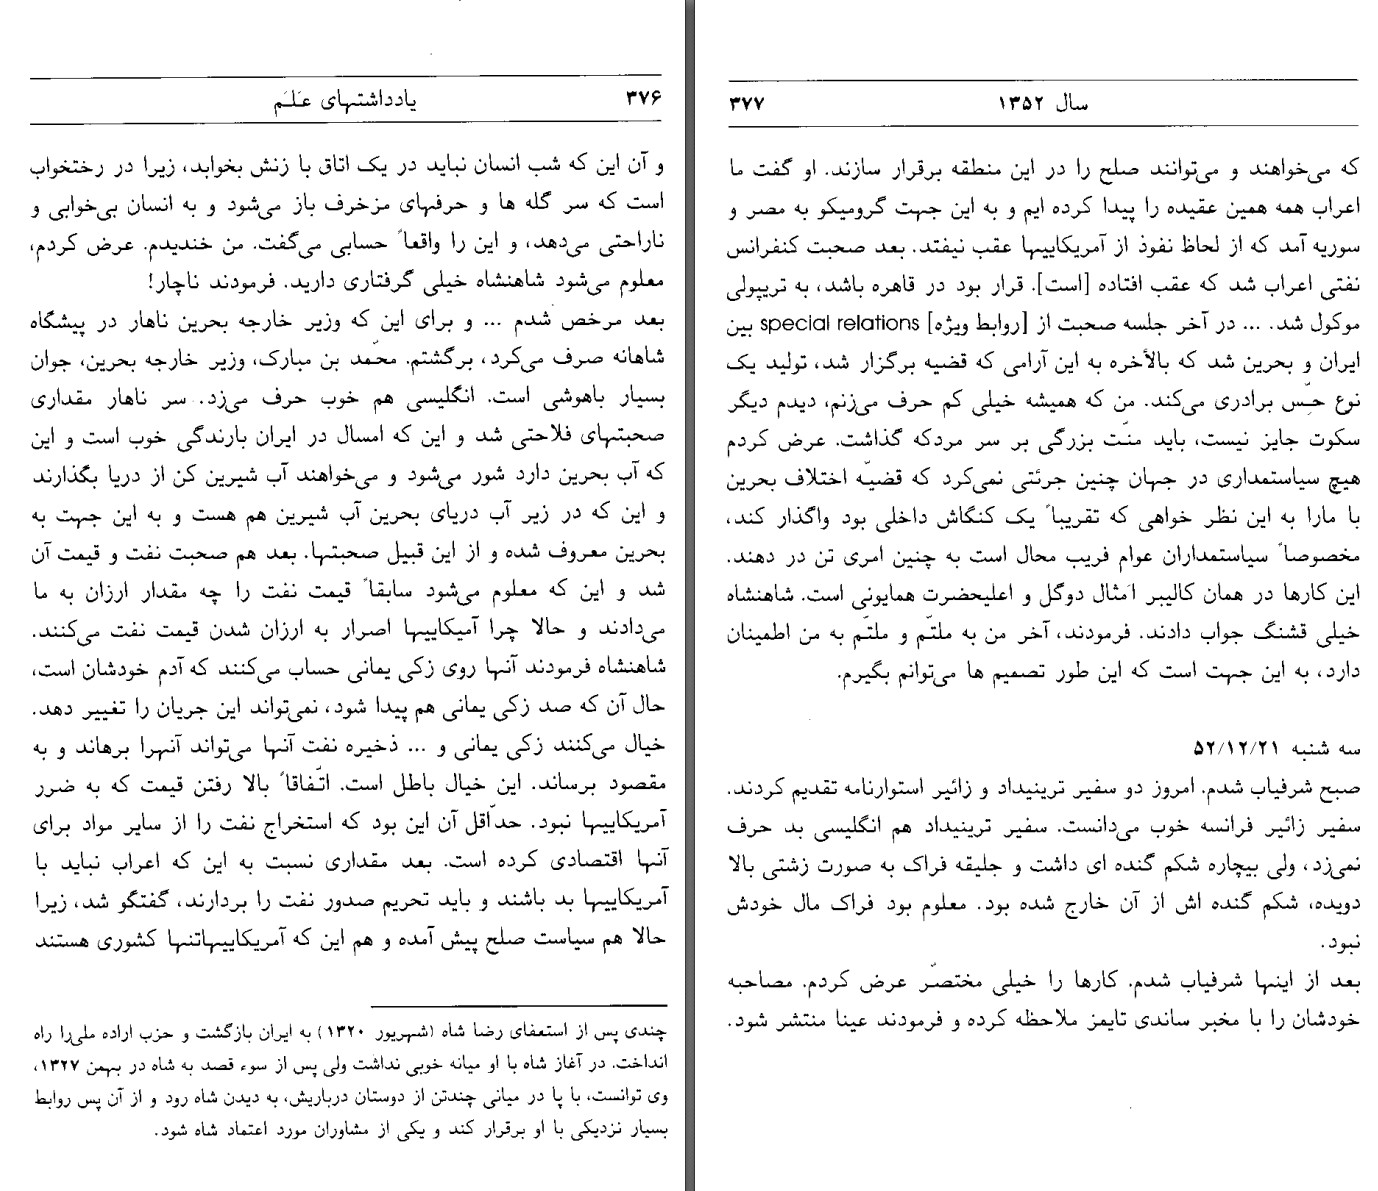 ۳۷۶
یادداشتهای عَلَم
و آن این که شب انسان نباید در یک اتاق با زنش بخوابد، زیرا در رختخواب
است که سر گله ها و حرفهای مزخرف باز می‌شود و به انسان بی‌خوابی و
ناراحتی می‌دهد، و این را واقعاً حسابی می‌گفت. من خندیدم. عرض کردم،
معلوم می‌شود شاهنشاه خیلی گرفتاری دارید. فرمودند ناچار!
بعد مرخص شدم ... و برای این که وزیر خارجه بحرین ناهار در پیشگاه
شاهانه صرف می‌کرد، برگشتم. محمّد بن مبارک، وزیر خارجه بحرین، جوان
بسیار باهوشی است. انگلیسی هم خوب حرف می‌زد. سر ناهار مقداری
صحبتهای فلاحتی شد و این که امسال در ایران بارندگی خوب است و این
که آب بحرین دارد شور می‌شود و می‌خواهند آب شیرین کن از دریا بگذارند
و این که در زیر آب دریای بحرین آب شیرین هم هست و به این جهت به
بحرین معروف شده و از این قبیل صحبتها. بعد هم صحبت نفت و قیمت آن
شد و این که معلوم می‌شود سابقاً قیمت نفت را چه مقدار ارزان به ما
می‌دادند و حالا چرا آمیکاییها اصرار به ارزان شدن قیمت نفت می‌کنند.
شاهنشاه فرمودند آنها روی زکی یمانی حساب می‌کنند که آدم خودشان است،
حال آن که صد زکی یمانی هم پیدا شود، نمی‌تواند این جریان را تغییر دهد.
خیال می‌کنند زکی یمانی و ... ذخیره نفت آنها می‌تواند آنهرا برهاند و به
مقصود برساند. این خیال باطل است. اتّفاقاً بالا رفتن قیمت که به ضرر
آمریکاییها نبود. حدّاقل آن این بود که استخراج نفت را از سایر مواد برای
آنها اقتصادی کرده است. بعد مقداری نسبت به این که اعراب نباید با
آمریکاییها بد باشند و باید تحریم صدور نفت را بردارند، گفتگو شد، زیرا
حالا هم سیاست صلح پیش آمده و هم این که آمریکاییهاتنها کشوری هستند
چندی پس از استعفای رضا شاه (شهریور ۱۳۲۰) به ایران بازگشت و حزب اراده ملی‌را راه
انداخت. در آغاز شاه با او میانه خوبی نداشت ولی پس از سوء قصد به شاه در بهمن ۱۳۲۷،
وی توانست، با پا در میانی چندتن از دوستان درباریش، به دیدن شاه رود و از آن پس روابط
بسیار نزدیکی با او برقرار کند و یکی از مشاوران مورد اعتماد شاه شود.
سال ۱۳۵۲
۳۷۷
که می‌خواهند و می‌توانند صلح را در این منطقه برقرار سازند. او گفت ما
اعراب همه همین عقیده را پیدا کرده ایم و به این جهت گرومیکو به مصر و
سوریه آمد که از لحاظ نفوذ از آمریکاییها عقب نیفتد. بعد صحبت کنفرانس
نفتی اعراب شد که عقب افتاده [است]. قرار بود در قاهره باشد، به تریپولی
موکول شد. ... در آخر جلسه صحبت از [روابط ویژه] special relations بین
ایران و بحرین شد که بالأخره به این آرامی که قضیه برگزار شد، تولید یک
نوع حسّ برادری می‌کند. من که همیشه خیلی کم حرف می‌زنم، دیدم دیگر
سکوت جایز نیست، باید منّت بزرگی بر سر مردکه گذاشت. عرض کردم
هیچ سیاستمداری در جهان چنین جرئتی نمی‌کرد که قضیّه اختلاف بحرین
با مارا به این نظر خواهی که تقریباً یک کنگاش داخلی بود واگذار کند،
مخصوصاً سیاستمداران عوام فریب محال است به چنین امری تن در دهند.
این کارها در همان کالیبر اَمثال دوگل و اعلیحضرت همایونی است. شاهنشاه
خیلی قشنگ جواب دادند. فرمودند، آخر من به ملتّم و ملتّم به من اطمینان
دارد، به این جهت است که این طور تصمیم ها می‌توانم بگیرم.
سه شنبه ۵۲/۱۲/۲۱
صبح شرفیاب شدم. امروز دو سفیر ترینیداد و زائیر استوارنامه تقدیم کردند.
سفیر زائیر فرانسه خوب می‌دانست. سفیر ترینیداد هم انگلیسی بد حرف
نمی‌زد، ولی بیچاره شکم گنده ای داشت و جلیقه فراک به صورت زشتی بالا
دویده، شکم گنده اش از آن خارج شده بود. معلوم بود فراک مال خودش
نبود.
بعد از اینها شرفیاب شدم. کارها را خیلی مختصّر عرض کردم. مصاحبه
خودشان را با مخبر ساندی تایمز ملاحظه کرده و فرمودند عینا منتشر شود.